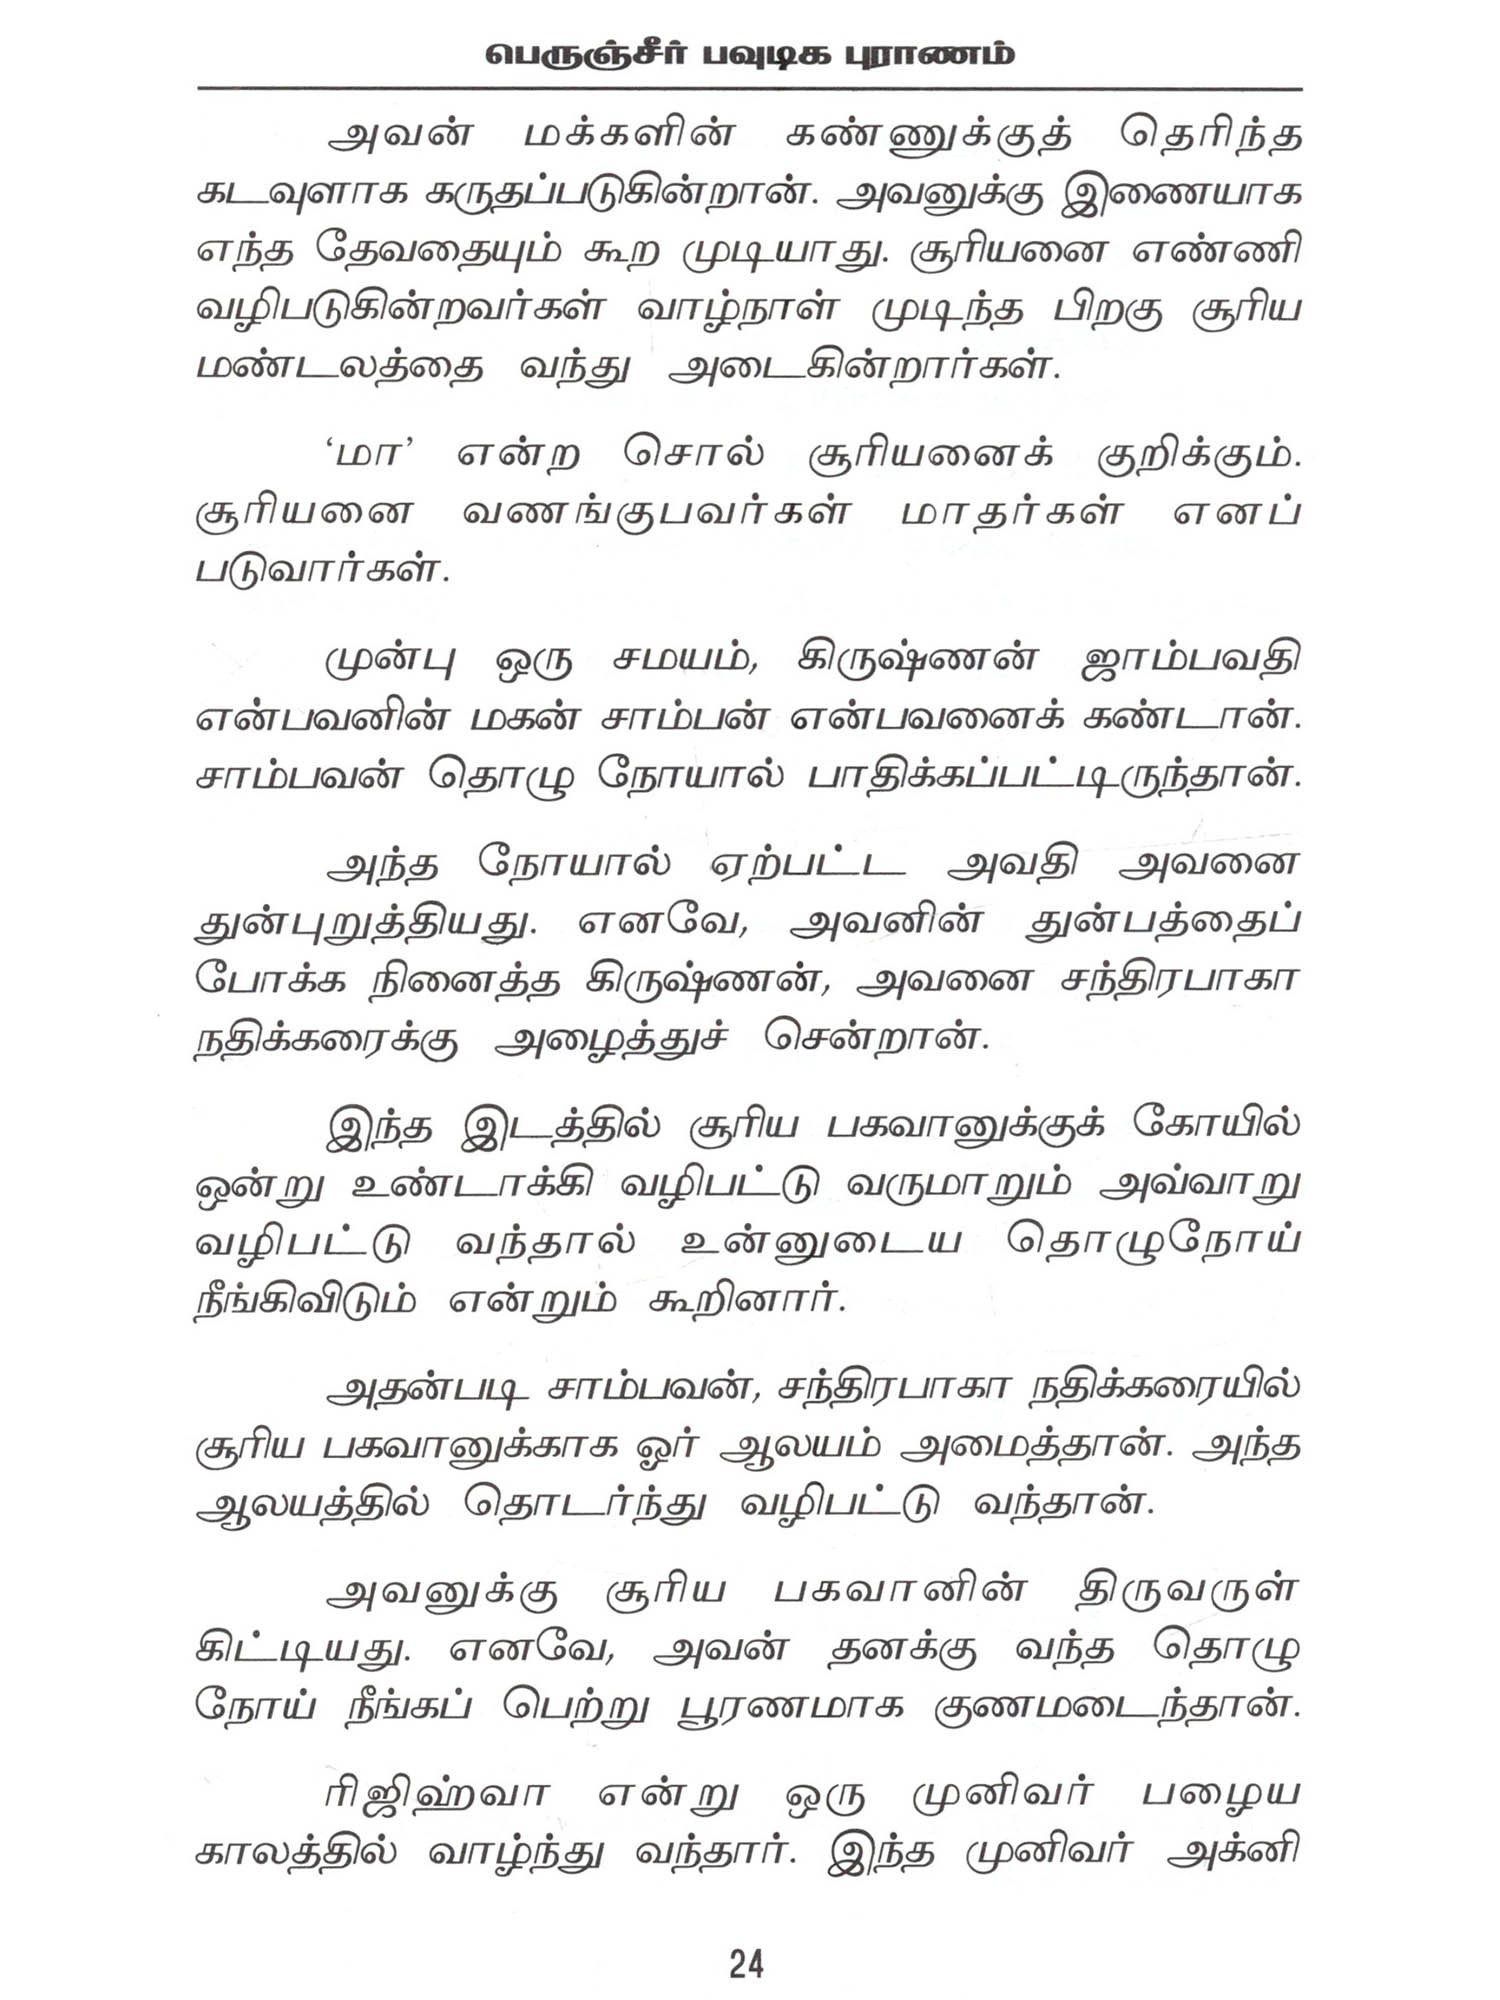 பெருஞ்சீர் பவுடிக புராணம்
அவன் மக்களின் கண்ணுக்குத் தெரிந்த
கடவுளாக கருதப்படுகின்றான். அவனுக்கு இணையாக
எந்த தேவதையும் கூற முடியாது. சூரியனை எண்ணி
வழிபடுகின்றவர்கள் வாழ்நாள் முடிந்த பிறகு சூரிய
மண்டலத்தை வந்து அடைகின்றார்கள்.
‘மா’ என்ற சொல் சூரியனைக் குறிக்கும்.
சூரியனை வணங்குபவர்கள் மாதர்கள் எனப்
படுவார்கள்.
முன்பு ஒரு சமயம், கிருஷ்ணன் ஜாம்பவதி
என்பவனின் மகன் சாம்பன் என்பவனைக் கண்டான்.
சாம்பவன் தொழு நோயால் பாதிக்கப்பட்டிருந்தான்.
அந்த நோயால் ஏற்பட்ட அவதி அவனை
துன்புறுத்தியது. எனவே, அவனின் துன்பத்தைப்
போக்க நினைத்த கிருஷ்ணன், அவனை சந்திரபாகா
நதிக்கரைக்கு அழைத்துச் சென்றான்.
இந்த இடத்தில் சூரிய பகவானுக்குக் கோயில்
ஒன்று உண்டாக்கி வழிபட்டு வருமாறும் அவ்வாறு
வழிபட்டு வந்தால் உன்னுடைய தொழுநோய்
நீங்கிவிடும் என்றும் கூறினார்.
அதன்படி சாம்பவன், சந்திரபாகா நதிக்கரையில்
சூரிய பகவானுக்காக ஓர் ஆலயம் அமைத்தான். அந்த
ஆலயத்தில் தொடர்ந்து வழிபட்டு வந்தான்.
அவனுக்கு சூரிய பகவானின் திருவருள்
கிட்டியது. எனவே, அவன் தனக்கு வந்த தொழு
நோய் நீங்கப் பெற்று பூரணமாக குணமடைந்தான்.
ரிஜிஹ்வா என்று ஒரு முனிவர் பழைய
காலத்தில் வாழ்ந்து வந்தார். இந்த முனிவர் அக்னி
24